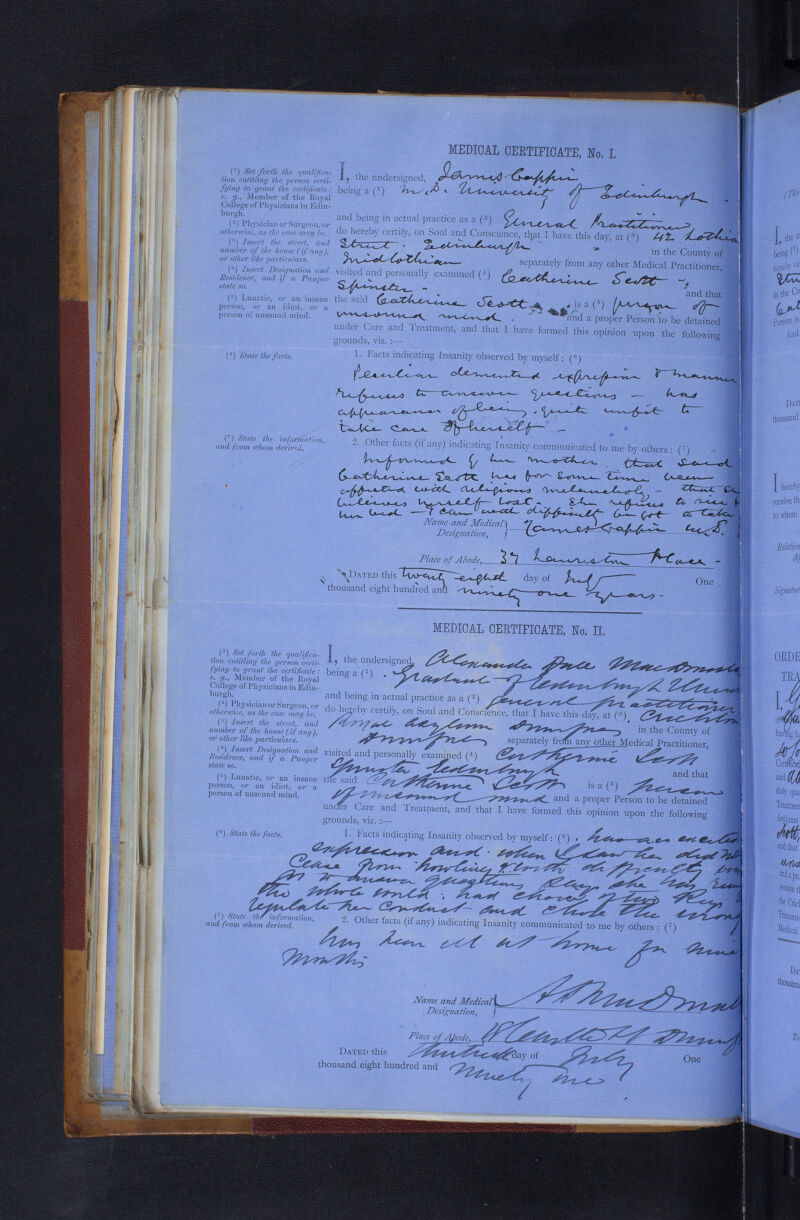 MEDICAL CERTIFICATE, No. I.
(¹) Set forth the qualifica-
tion entitling the person certi-
fying to grant the certificate:
e. g., Member of the Royal
College of Physicians in Edin-
burgh.
(²) Physician or Surgeon, or
otherwise, as the case may be.
(³) Insert the street, and
number of the house (if any),
or other like particulars.
(⁴) Insert Designation and
Residence, and if a Pauper
state so.
(⁵) Lunatic, or an insane
person, or an idiot, or a
person of unsound mind.
I, the undersigned, James Cappie
being a (¹) M.D. University of Edinburgh -
and being in actual practice as a (²) General Practitioner
do hereby certify, on Soul and Conscience, that I have this day, at (³) 42 Lothian
Street. Edinburgh in the County of
Midlothian separately from any other Medical Practitioner,
visited and personally examined (⁴) Catherine Scott -,
Spinster - and that
the said Catherine Scott is a (⁵) person of
unsound mind. and a proper Person to be detained
under Care and Treatment, and that I have formed this opinion upon the following
grounds, viz. :—
(⁶) State the facts.
1. Facts indicating Insanity observed by myself: (⁶)
Peculiar demented expression & manner
refuses to answer questions - has
appearance of being quite unfit to
take care of herself -
(⁷) State the information,
and from whom derived.
2. Other facts (if any) indicating Insanity communicated to me by others: (⁷)
Informed by her mother that said
Catherine Scott has for some time been
affected with religious melancholy - that she
believes herself lost - She refuses to rise
her bed - & can with difficulty be got to take
Name and Medical
Designation, James Cappie M.D.
Place of Abode, 37 Lauriston Place -
DATED this twenty eighth day of July One
thousand eight hundred and ninety one years.
MEDICAL CERTIFICATE, No. II.
(¹) Set forth the qualifica-
tion entitling the person certi-
fying to grant the certificate:
e. g., Member of the Royal
College of Physicians in Edin-
burgh.
(²) Physician or Surgeon, or
otherwise, as the case may be.
(³) Insert the street, and
number of the house (if any),
or other like particulars.
(⁴) Insert Designation and
Residence, and if a Pauper
state so.
(⁵) Lunatic, or an insane
person, or an idiot, or a
person of unsound mind.
I, the undersigned, Alexander Dale MacDonald
being a (¹) Graduate of Edinburgh
and being in actual practice as a (²) General practitioner
do hereby certify, on Soul and Conscience, that I have this day, at (³) Crichton
Royal Asylum Dumfries in the County of
Dumfries separately from any other Medical Practitioner,
visited and personally examined (⁴) Catherine Scott
Spinster Edinburgh and that
the said Catherine Scott is a (⁵) person
of unsound mind and a proper Person to be detained
under Care and Treatment, and that I have formed this opinion upon the following
grounds, viz. :—
(⁶) State the facts.
1. Facts indicating Insanity observed by myself: (⁶) has an excited
expression and when I saw her did not
cease from howling & with difficulty
to answer questions Says she has
the whole world. had choice of two
regulate her conduct and chose the wrong
(⁷) State the information,
and from whom derived.
2. Other facts (if any) indicating Insanity communicated to me by others: (⁷)
has been ill at home for nine
months
Name and Medical
Designation, A D MacDonald
Place of Abode, 18 Castle St
DATED this day of July One
thousand eight hundred and Ninety one